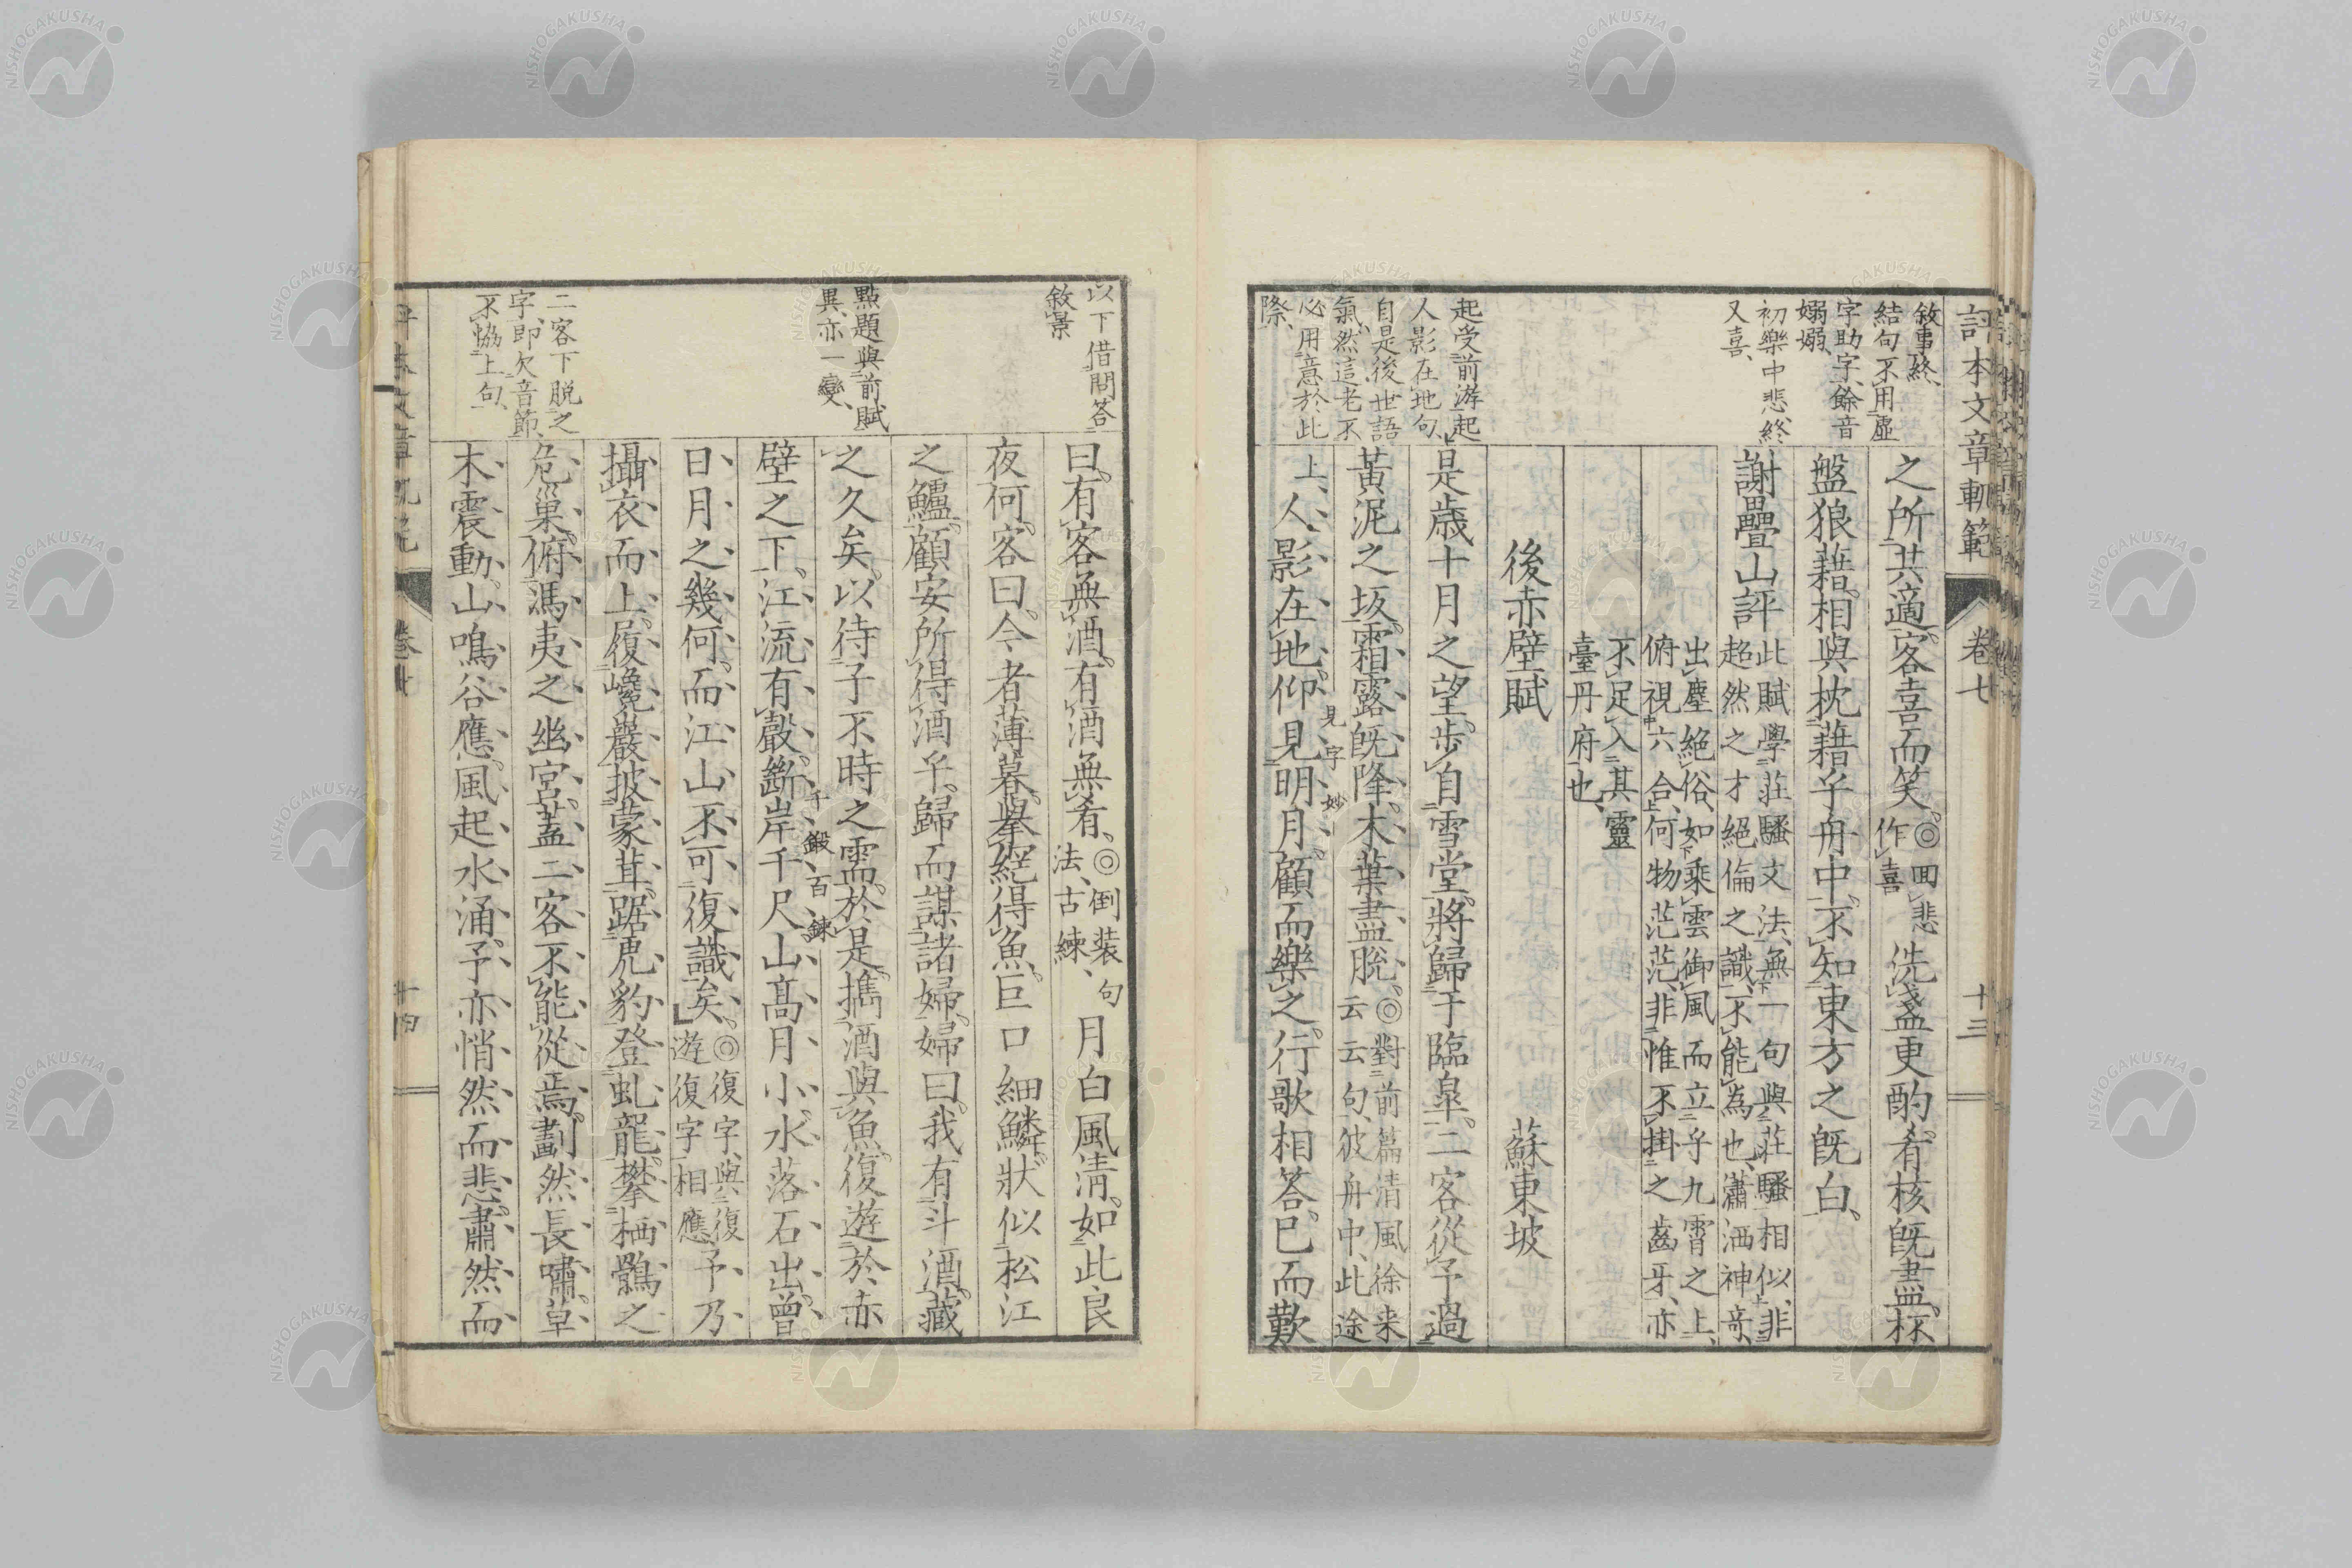 評本文章軌範 卷七 十三
敘事終、
結句不用虛
字助字、餘音
嫋嫋、
初樂中悲、終
又喜、
起受前游起
人影在地句、
自是後世語
氣、然這老不
必用意於此
際、
之所共適。客喜而笑。◎回悲
作喜
洗盞更酌。肴核既盡、杯
盤狼藉。相與枕藉乎舟中、不知東方之既白。
謝疊山評
此賦學莊騷文法、無一句與莊騷相似、非
超然之才絕倫之識、不能為也、瀟洒神奇、
出塵絕俗、如乘雲御風而立乎九霄之上、
俯視六合、何物茫茫、非惟不掛之齒牙、亦
不足入其靈
臺丹府也、
後赤壁賦 蘇東坡
是歲十月之望。步自雪堂、將歸于臨皋。二客從予過
黃泥之坂。霜露既降。木葉盡脫。◎對前篇清風徐来
云云句、彼舟中、此途
上、人影在地。仰見明月。顧而樂之。行歌相答。已而歎
見字妙
以下借問答
敘景
點題與前賦
異、亦一變、
二客下脫之
字、即欠音節、
不恊上句、
曰。有客無酒。有酒無肴。◎倒裝句
法、古練、
月白風清。如此良
夜何。客曰。今者薄暮。舉網得魚。巨口細鱗。狀似松江
之鱸。顧安所得酒乎。歸而謀諸婦。婦曰。我有斗酒。藏
之久矣。以待子不時之需。於是携酒與魚。復遊於赤
壁之下。江流有聲。斷岸千尺。山高月小。水落石出。曾
千鍛百鍊
日月之幾何。而江山不可復識矣。◎復字、與復
遊復字相應、
予乃
攝衣而上。履巉巖。披蒙茸。踞虎豹。登虬龍。攀栖鶻之
危巢。俯馮夷之幽宮。蓋二客不能從焉。劃然長嘯。草
木震動。山鳴谷應。風起水涌。予亦悄然而悲。肅然而
卷七
十四